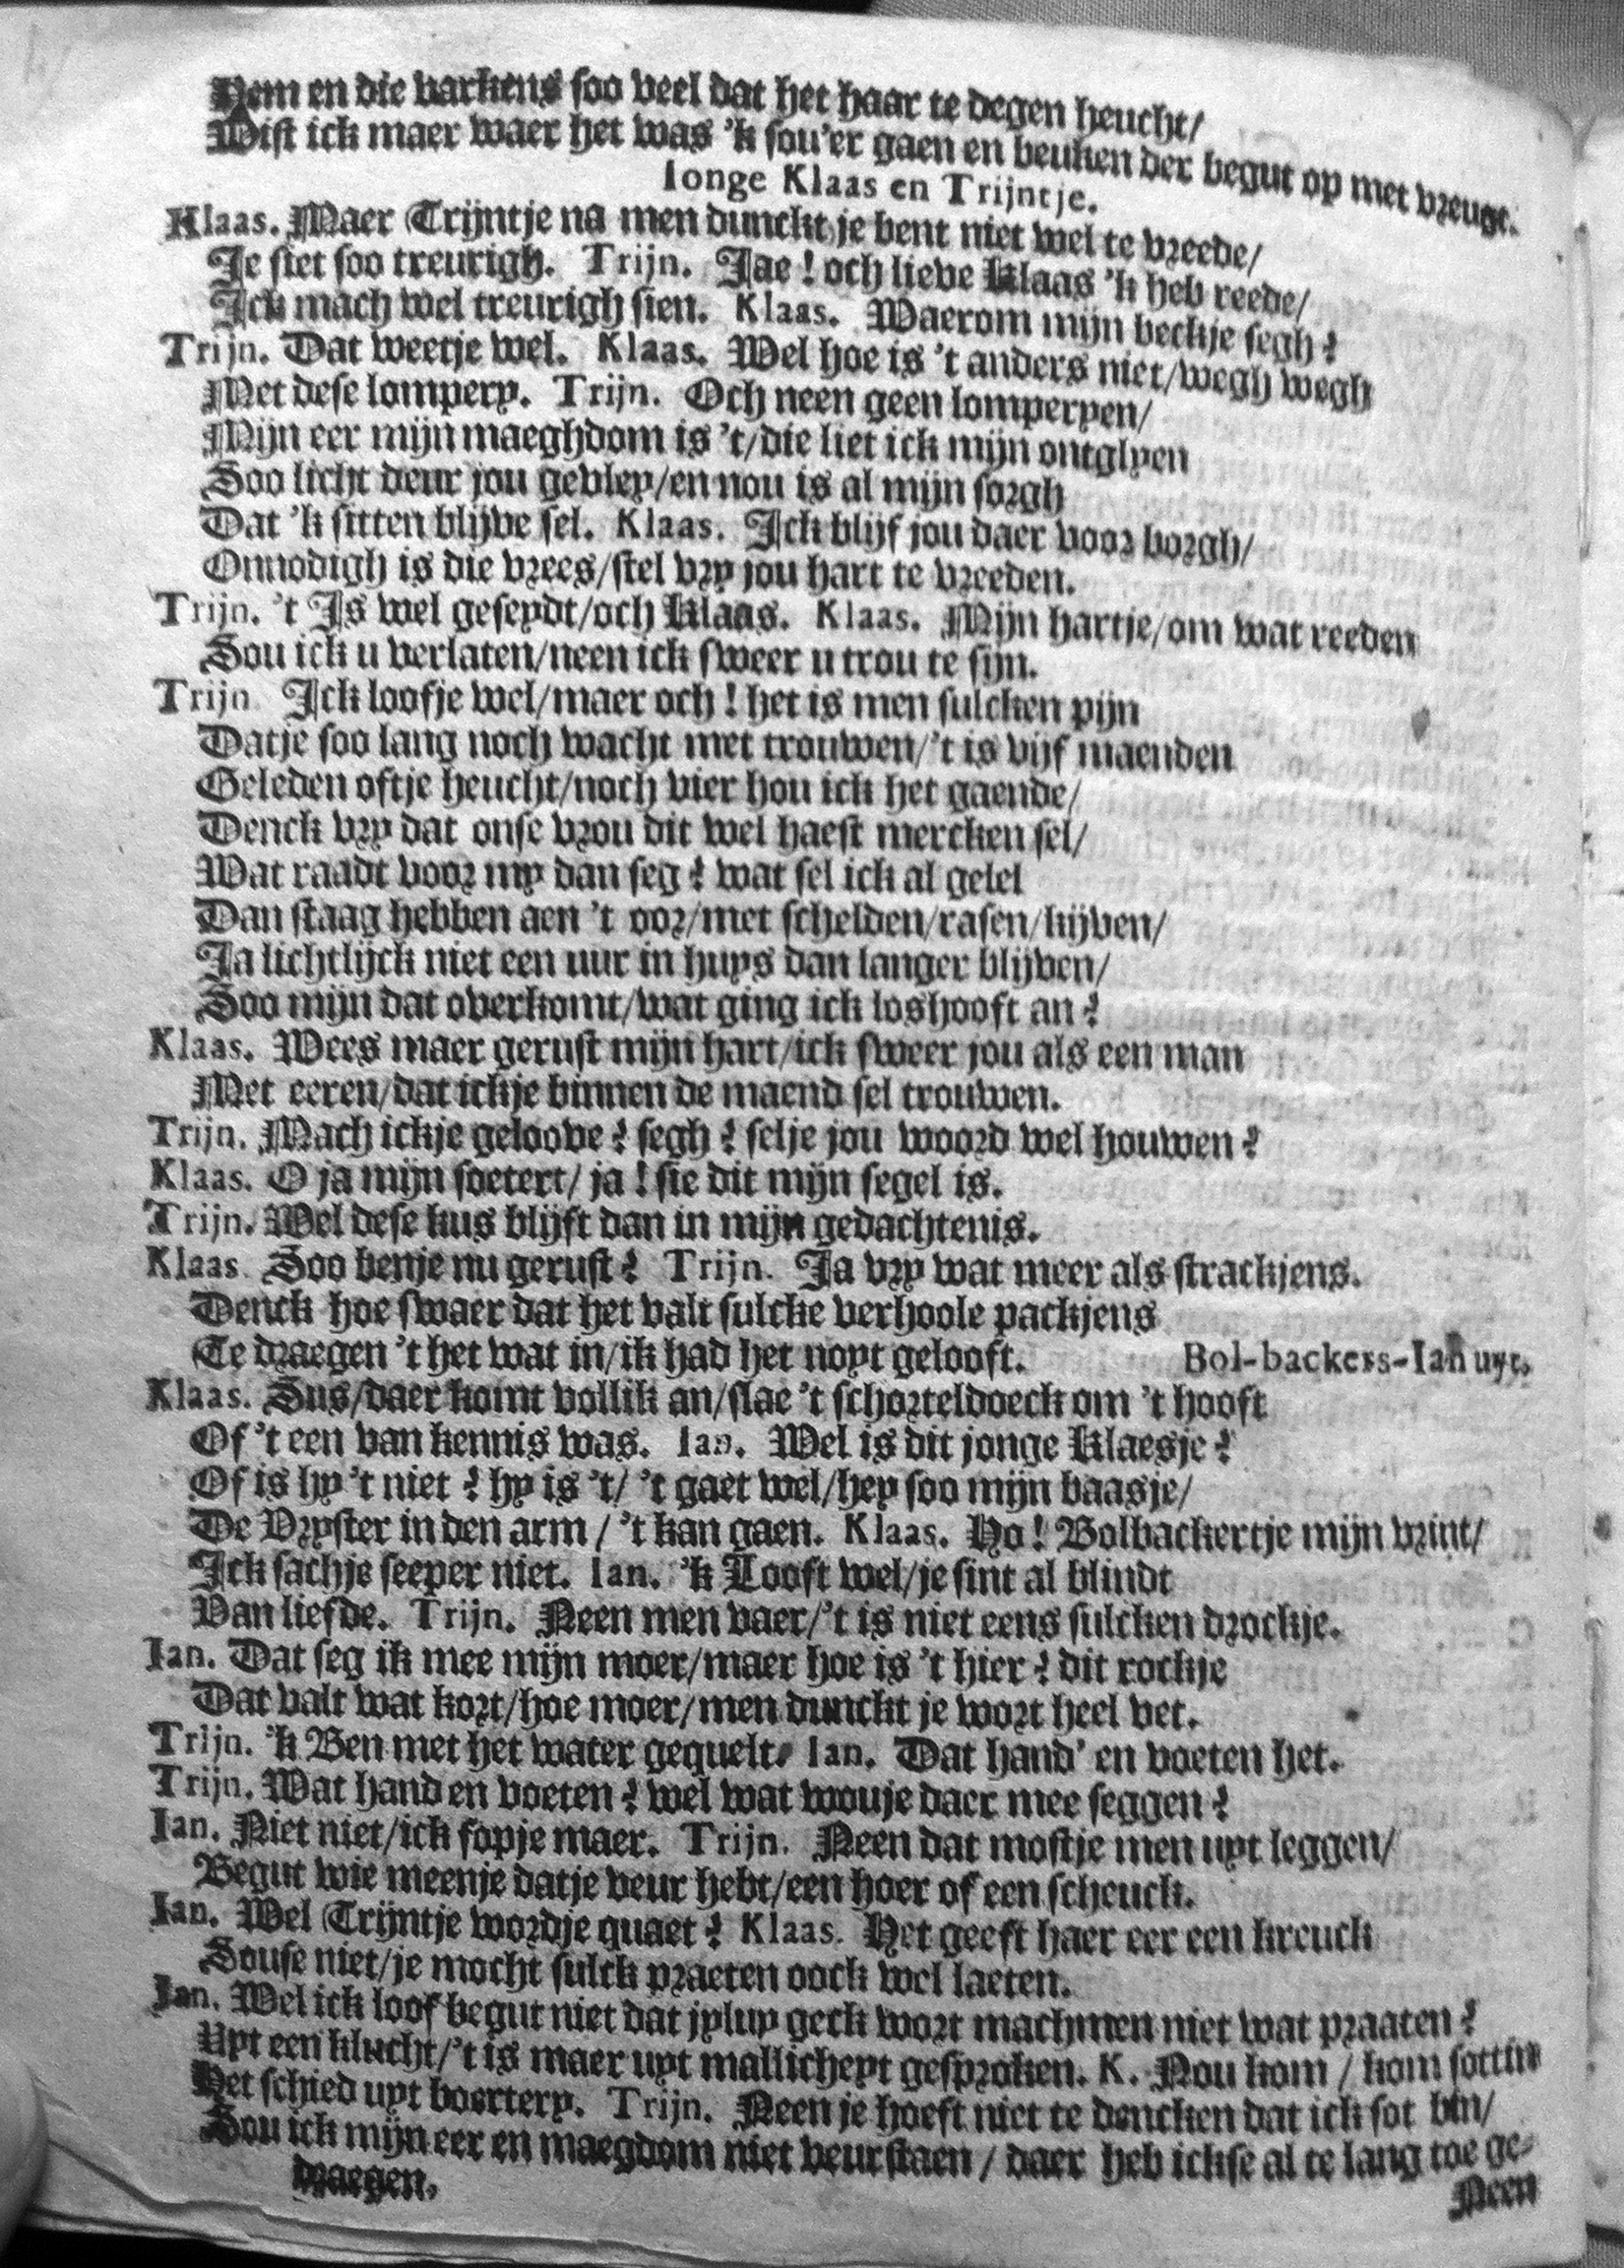 Hem en die varkens soo veel dat het haar te degen heucht/
Wist ick maer waer het was 'k sou'er gaen en beuken der begut op met vreugt.
Ionge Klaas en Trijntje.
Klaas. Maer Trijntje na men dunckt je bent niet wel te vreede/
Je siet soo treurigh. Trijn. Jae! och lieve Klaas 'k heb reede/
Ick mach wel treurigh sien. Klaas. Waerom mijn beckje segh?
Trijn. Dat weetje wel. Klaas. Wel hoe is 't anders niet/wegh wegh
Met dese lompery. Trijn. Och neen geen lomperyen/
Mijn eer mijn maeghdom is 't/die liet ick mijn ontglyen
Soo licht deur jou gevley/en nou is al mijn sorgh
Dat 'k sitten blijve sel. Klaas. Ick blijf jou daer voor borgh/
Onnodigh is die vrees/stel vry jou hart te vreeden.
Trijn. 't Is wel geseydt/och Klaas. Klaas. Mijn hartje/om wat reeden
Sou ick u verlaten/neen ick sweer u trou te sijn.
Trijn Ick loofje wel/maer och! het is men sulcken pijn
Datje soo lang noch wacht met trouwen/'t is vijf maenden
Geleden oftje heucht/noch vier hou ick het gaende/
Denck vry dat onse vrou dit wel haest mercken sel/
Wat raadt voor my dan seg? wat sel ick al gelel
Dan staag hebben aen 't oor/met schelden/rasen/kijven/
Ja lichtlijck niet een uur in huys dan langer blijven/
Soo mijn dat overkomt/wat ging ick loshooft an?
Klaas. Wees maer gerust mijn hart/ick sweer jou als een man
Met eeren/dat ickje binnen de maend sel trouwen.
Trijn. Mach ickje geloove? segh? selje jou woord wel houwen?
Klaas. O ja mijn soetert/ ja! sie dit mijn segel is.
Trijn. Wel dese kus blijft dan in mijn gedachtenis.
Klaas. Soo benje nu gerust? Trijn. Ja vry wat meer als strackjens.
Denck hoe swaer dat het valt sulcke verhoole packjens
Te draegen 't het wat in/ik had het noyt gelooft. Bol-backers-Ian uyt.
Klaas. Sus/daer komt vollik an/slae 't schorteldoeck om 't hooft
Of 't een van kennis was. Ian. Wel is dit jonge Klaesje?
Of is hy 't niet? hy is 't/ 't gaet wel/hey soo mijn baasje/
De Vryster in den arm / 't kan gaen. Klaas. Ho! Bolbackertje mijn vrint/
Ick sachje seeper niet. Ian. 'k Looft wel/je sint al blindt
Van liefde. Trijn. Neen men vaer/'t is niet eens sulcken drockje.
Ian. Dat seg ik mee mijn moer/maer hoe is 't hier? dit rockje
Dat valt wat kort/hoe moer/men dunckt je wort heel vet.
Trijn. 'k Ben met het water gequelt. Ian. Dat hand' en voeten het.
Trijn. Wat hand en voeten? wel wat wouje daer mee seggen?
Ian. Niet niet/ick fopje maer. Trijn. Neen dat mostje men uyt leggen/
Begut wie meenje datje veur hebt/een hoer of een scheuck.
Ian. Wel Trijntje wordje quaet? Klaas. Het geeft haer eer een kreuck
Souse niet/je mocht sulck praeten oock wel laeten.
Ian. Wel ick loof begut niet dat jyluy geck wort machmen niet wat praaten?
Uyt een klucht/'t is maer uyt mallicheyt gesproken. K. Nou kom / kom sottin
Het schied uyt boertery. Trijn. Neen je hoeft niet te dencken dat ick sot bin/
Sou ick mijn eer en maegdom niet veurstaen / daer heb ickse al te lang toe ge-
draegen.
Neen